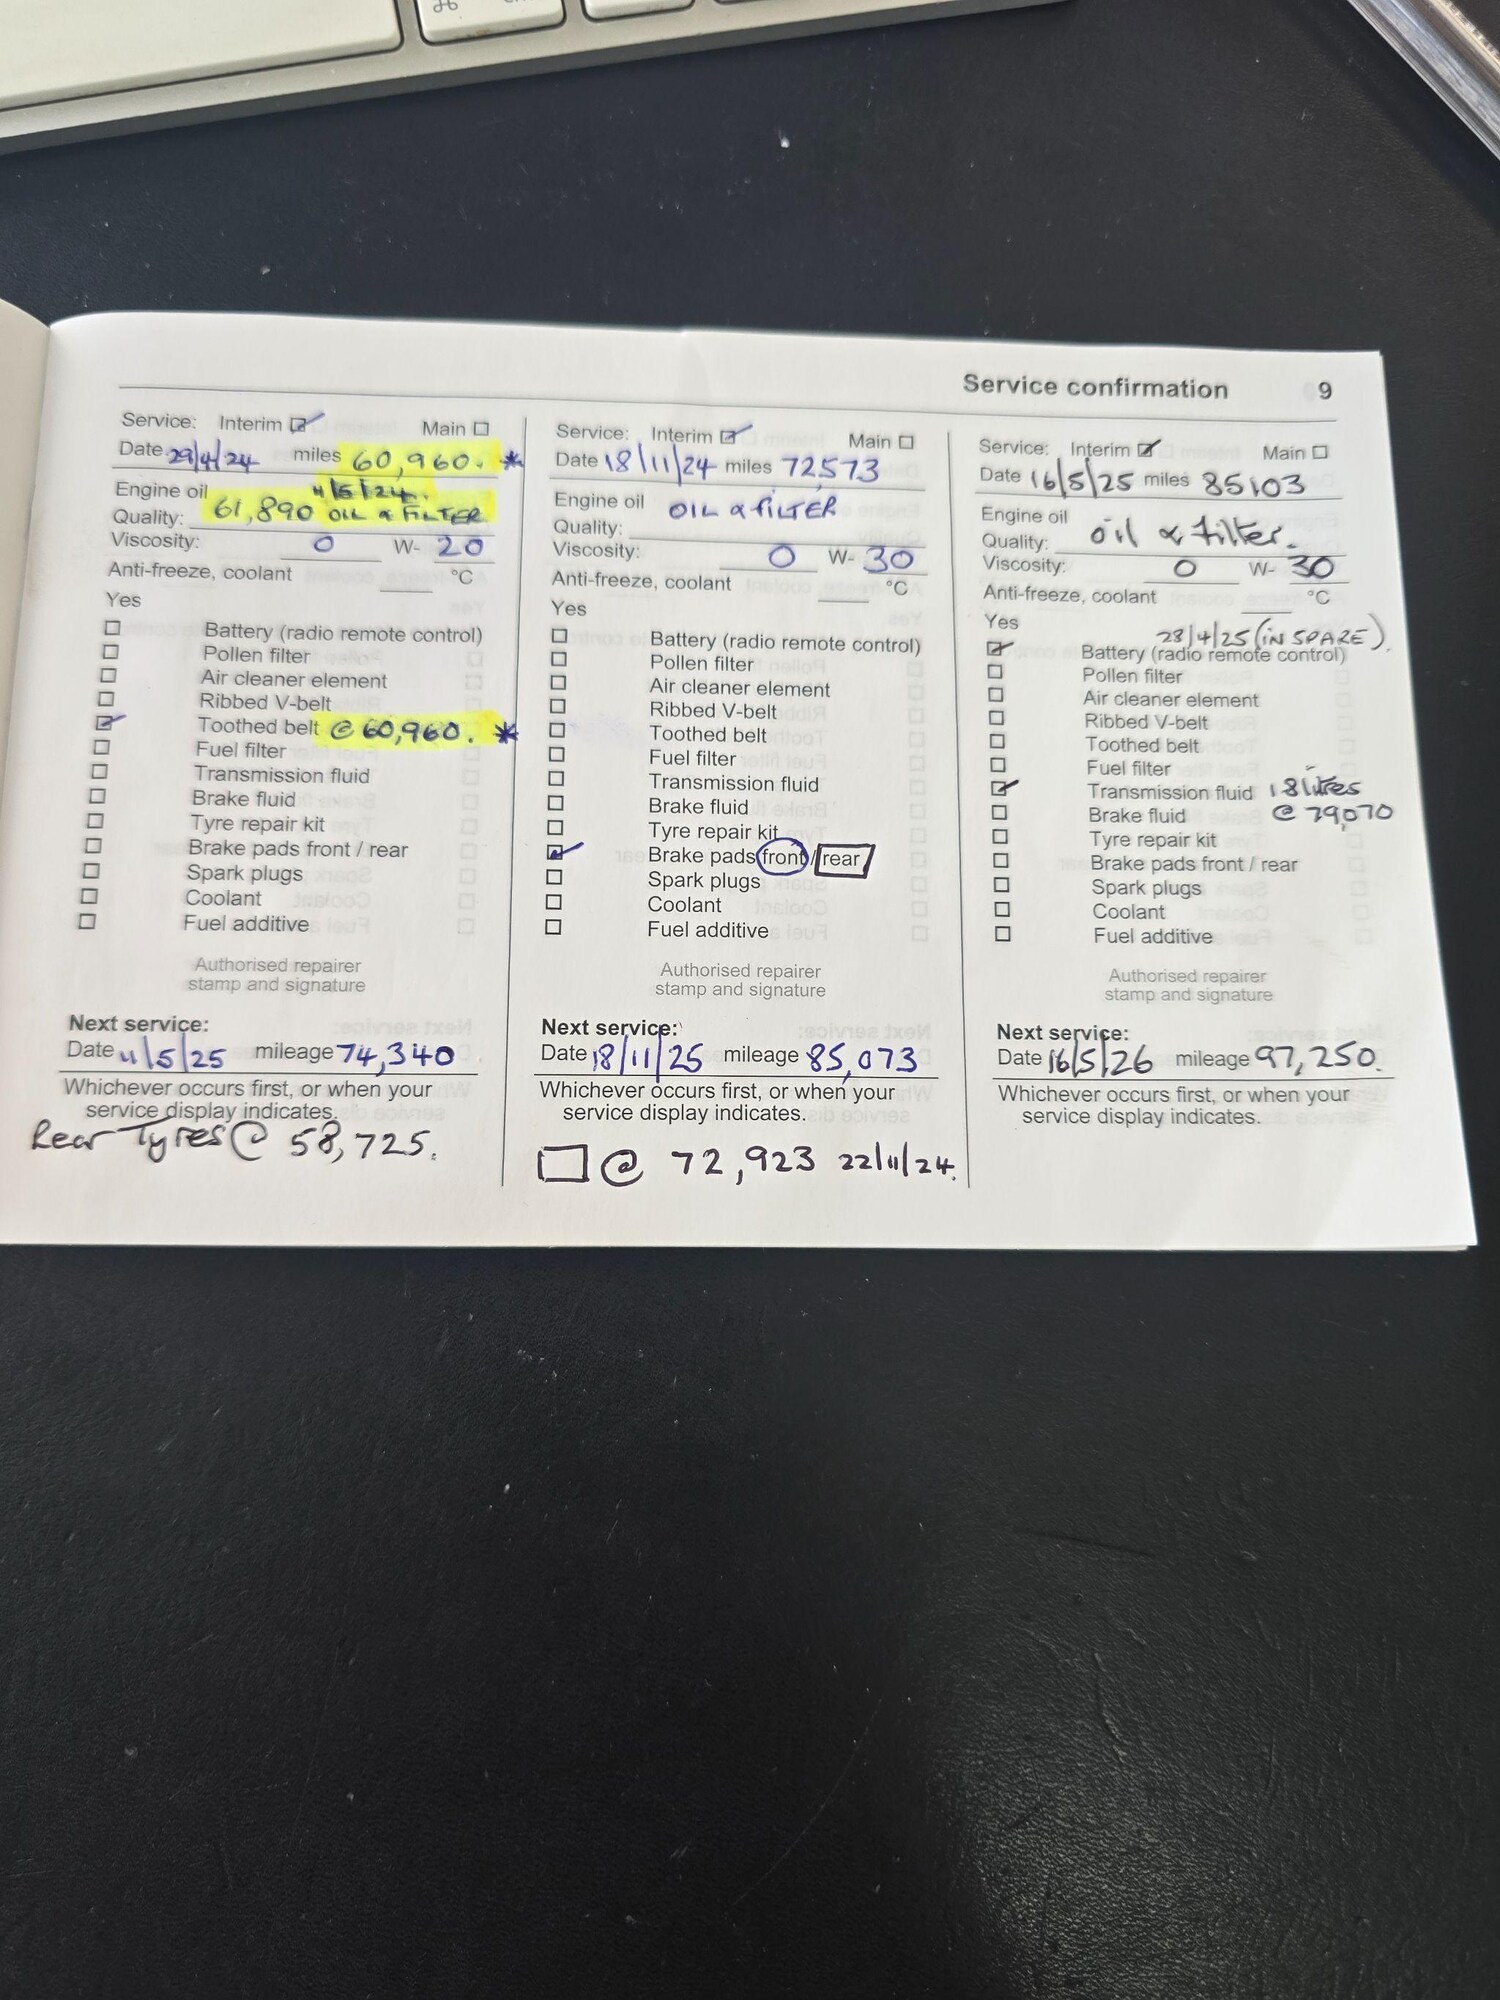 ⌘
Service confirmation 9
Service: Interim ☑ Main ☐
Date 29/4/24 miles 60,960. *
Engine oil 11/5/24.
Quality: 61,890 OIL & FILTER
Viscosity: 0 W- 20
Anti-freeze, coolant °C
Yes
☐ Battery (radio remote control)
☐ Pollen filter
☐ Air cleaner element
☐ Ribbed V-belt
☑ Toothed belt @ 60,960. *
☐ Fuel filter
☐ Transmission fluid
☐ Brake fluid
☐ Tyre repair kit
☐ Brake pads front / rear
☐ Spark plugs
☐ Coolant
☐ Fuel additive
Authorised repairer
stamp and signature
Next service:
Date 11/5/25 mileage 74,340
Whichever occurs first, or when your
service display indicates.
Rear Tyres @ 58,725.
Service: Interim ☑ Main ☐
Date 18/11/24 miles 72,573
Engine oil OIL & FILTER
Quality:
Viscosity: 0 W- 30
Anti-freeze, coolant °C
Yes
☐ Battery (radio remote control)
☐ Pollen filter
☐ Air cleaner element
☐ Ribbed V-belt
☐ Toothed belt
☐ Fuel filter
☐ Transmission fluid
☐ Brake fluid
☐ Tyre repair kit
☑ Brake pads front / rear
☐ Spark plugs
☐ Coolant
☐ Fuel additive
Authorised repairer
stamp and signature
Next service:
Date 18/11/25 mileage 85,073
Whichever occurs first, or when your
service display indicates.
☐ @ 72,923 22/11/24.
Service: Interim ☑ Main ☐
Date 16/5/25 miles 85103
Engine oil
Quality: oil & filter.
Viscosity: 0 W- 30
Anti-freeze, coolant °C
Yes 28/4/25 (IN SPARE).
☑ Battery (radio remote control)
☐ Pollen filter
☐ Air cleaner element
☐ Ribbed V-belt
☐ Toothed belt
☐ Fuel filter
☑ Transmission fluid 18 litres
☐ Brake fluid @ 79,070
☐ Tyre repair kit
☐ Brake pads front / rear
☐ Spark plugs
☐ Coolant
☐ Fuel additive
Authorised repairer
stamp and signature
Next service:
Date 16/5/26 mileage 97,250.
Whichever occurs first, or when your
service display indicates.